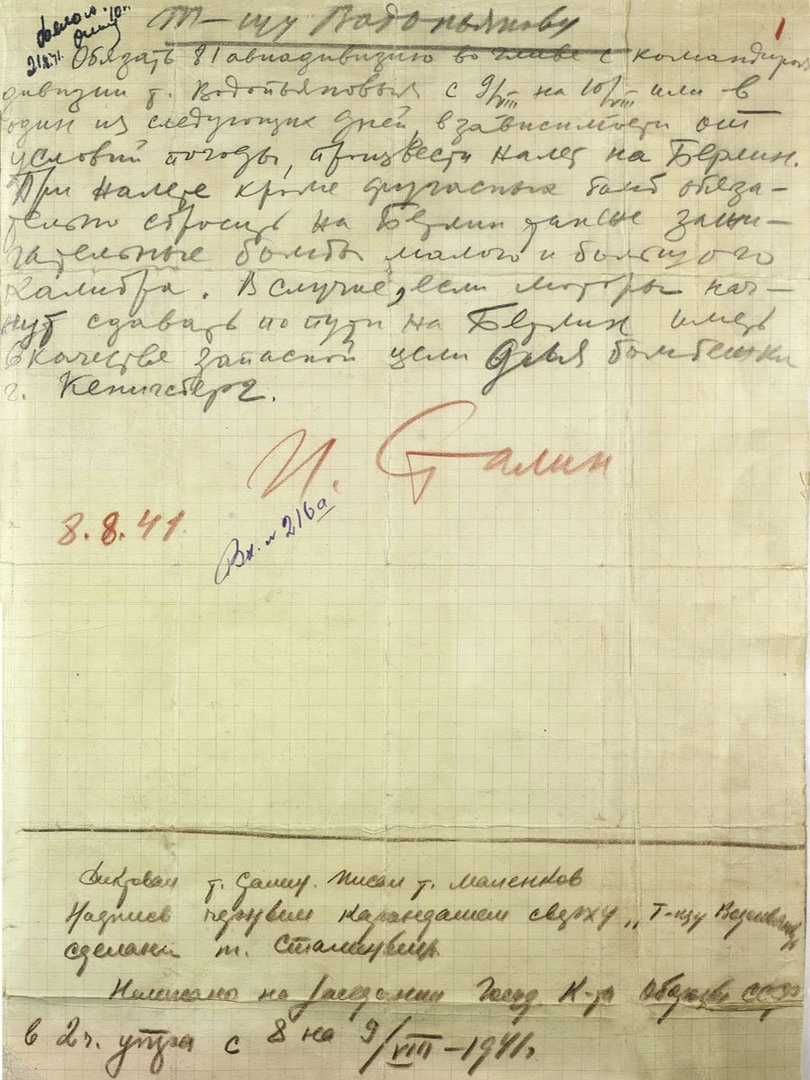 Т-щу Водопьянову
1
21/8 41.
Обязать 81 авиадивизию во главе с командиром
дивизии т. Водопьяновым с 9/VIII на 10/VIII или в
один из следующих дней, в зависимости от
условий погоды, произвести налет на Берлин.
При налете кроме фугасных бомб обяза-
тельно сбросить на Берлин также зажи-
гательные бомбы малого и большого
калибра. В случае, если моторы нач-
нут сдавать по пути на Берлин иметь
в качестве запасной цели для бомбежки
г. Кенигсберг.
И. Сталин
8.8.41
Вх. № 216а
Диктовал т. Сталин. Писал т. Маленков
Надпись черным карандашем сверху „Т-щу Водопьянову
сделана т. Сталиным
Написано на заседании Госуд. К-та Обороны СССР
в 2 ч. утра с 8 на 9/VIII-1941г.